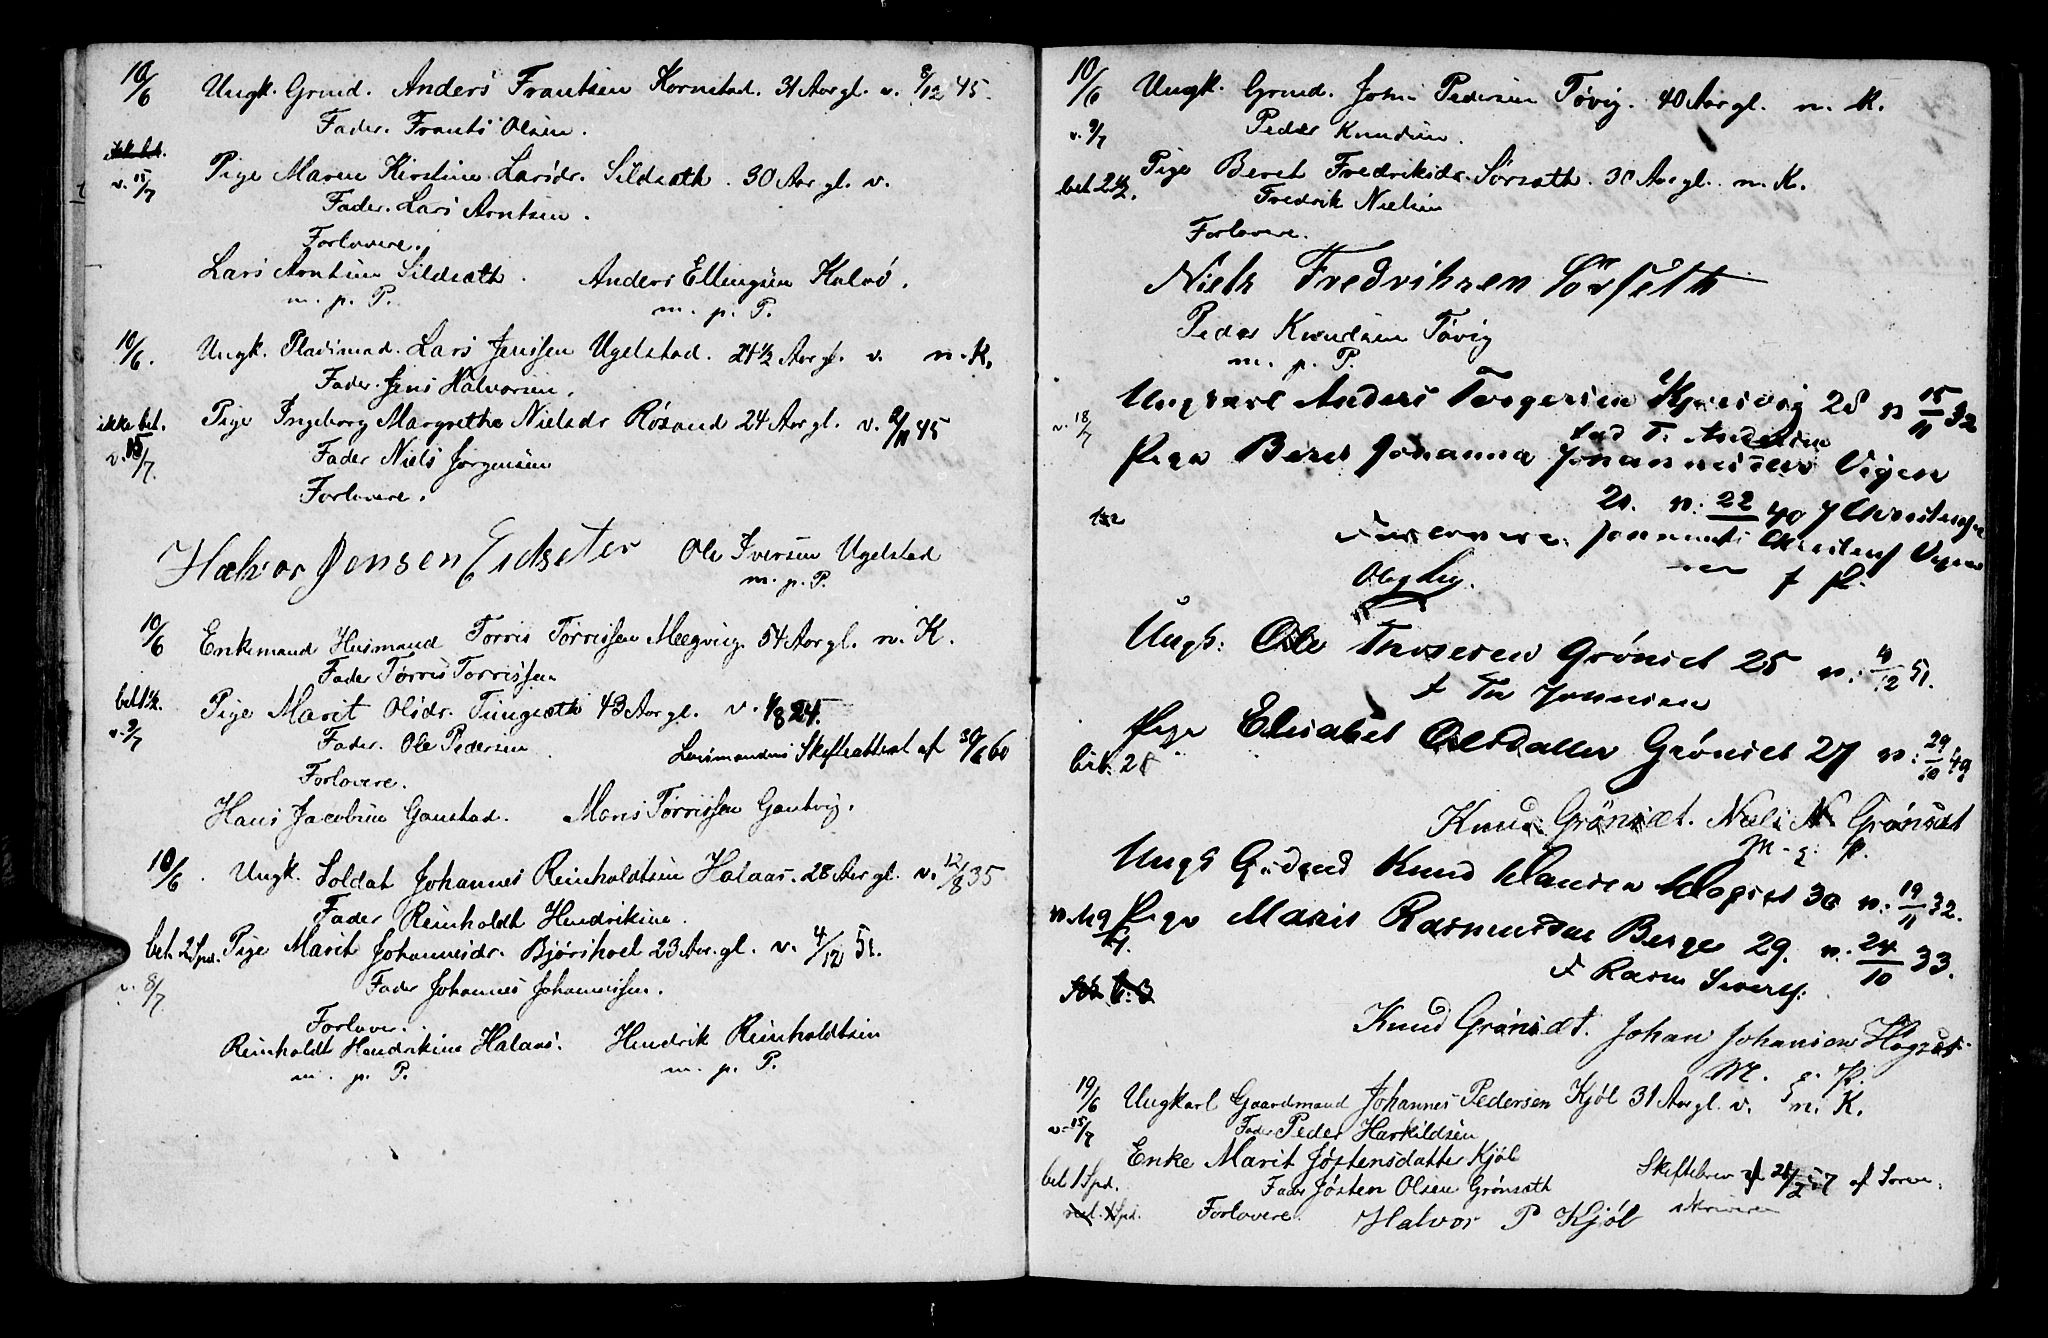 10/6 Ungk. Grmd. Anders Frantsen Kornstad. 31 Aar gl. v. 8/12 45.
Fader. Frants Olsen.
ikke bet.
v. 15/7 Pige Maren Kirstine Larsdr. Sildsæth. 30 Aar gl. v.
Fader. Lars Arntsen.
Forlovere.
Lars Arntsen Sildsæth. Anders Ellingsen Kalvø.
m. p. P. m. p. P.
10/6. Ungk. Pladsmd. Lars Jenssen Ugelstad. 28½ Aar gl. v. n. K.
Fader. Jens Halvorsen.
ikke bet. Pige Ingeborg Margrethe Nielsdr Røsand 24 Aar gl. v. 2/11 45
v. 15/7. Fader Niels Jørgensen
Forlovere.
Halvor Jensen Eidseter Ole Iversen Ugelstad
m. p. P.
10/6 Enkemand Husmand Torris Torrissen Meegvig 54 Aar gl. n. K.
Fader Tørris Torrissen
bet 1½. Pige Marit Olsdr. Tungsæth 43 Aar gl. v. 1/8 24.
v. 9/7 Fader. Ole Pedersen Lensmandens Skifteattest af 30/6 60
Forlovere.
Hans Jacobsen Gaustad. Mons Tørrissen Gautvig.
10/6. Ungk. Soldat Johannes Reinholdtsen Halaas. 28 Aar gl. v. 12/8 35
Fader Reinholdt Hendriksen.
bet. 2 Spd. Pige Marit Johannesdr. Bjørshoel 23 Aar gl. v. 4/12 51.
v. 8/7 Fader Johannes Johannessen.
Forlover.
Reinholdt Hendriksen Halaas. Hendrik Reinholdtsen
m. p. P. m. p. P.
10/6 Ungk. Grmd. John Pedersen Tøvig. 40 Aar gl. n. K.
v. 9/7 Peder Knudsen.
bet. 2½. Pige Beret Fredriksdr. Sørsæth. 30 Aar gl. n. K.
Fredrik Nielsen
Forlovere.
Niels Fredriksen Sørseth
Peder Knudsen Tøvig
m. p. P.
Ungkarl Anders Torgersen 28 v 15/11 32
v. 18/7 T. Andersen
Pige Beret Johanna Vigen
21. v. 22 40
Forlovere.
Ungk: Ole Thoresen Grønset 25 v. 4/12 51.
f Tor Johnsen
Pige Elisabet Olsdatter Grønset 27 v: 29/10 49
bet. 2
Knud Grønsæt. Niels N. Grønsæt
M. p. P.
Ungk Knud Hansen Hogset 30 v: 19/11 32.
Pige Marit Rasmusdat Berge 29. v. 24/10 33.
f Rasm Siverts:
Knud Grønsæt. Johan Johansen Hogset
M. p. P.
19/6 Ungkarl Gaardmand Johannes Pedersen Kjøl 31 Aar gl. v. n. K.
v. 15/7 Fader Peder Harkildsen
Enke Marit Jøstensdatter Kjøl
bet 1 Spd. Fader Jøsten Olsen Grønsæth Skiftebrev af 28/2 57 af Soren-
Forlovere. Halvor P Kjøl skriveren